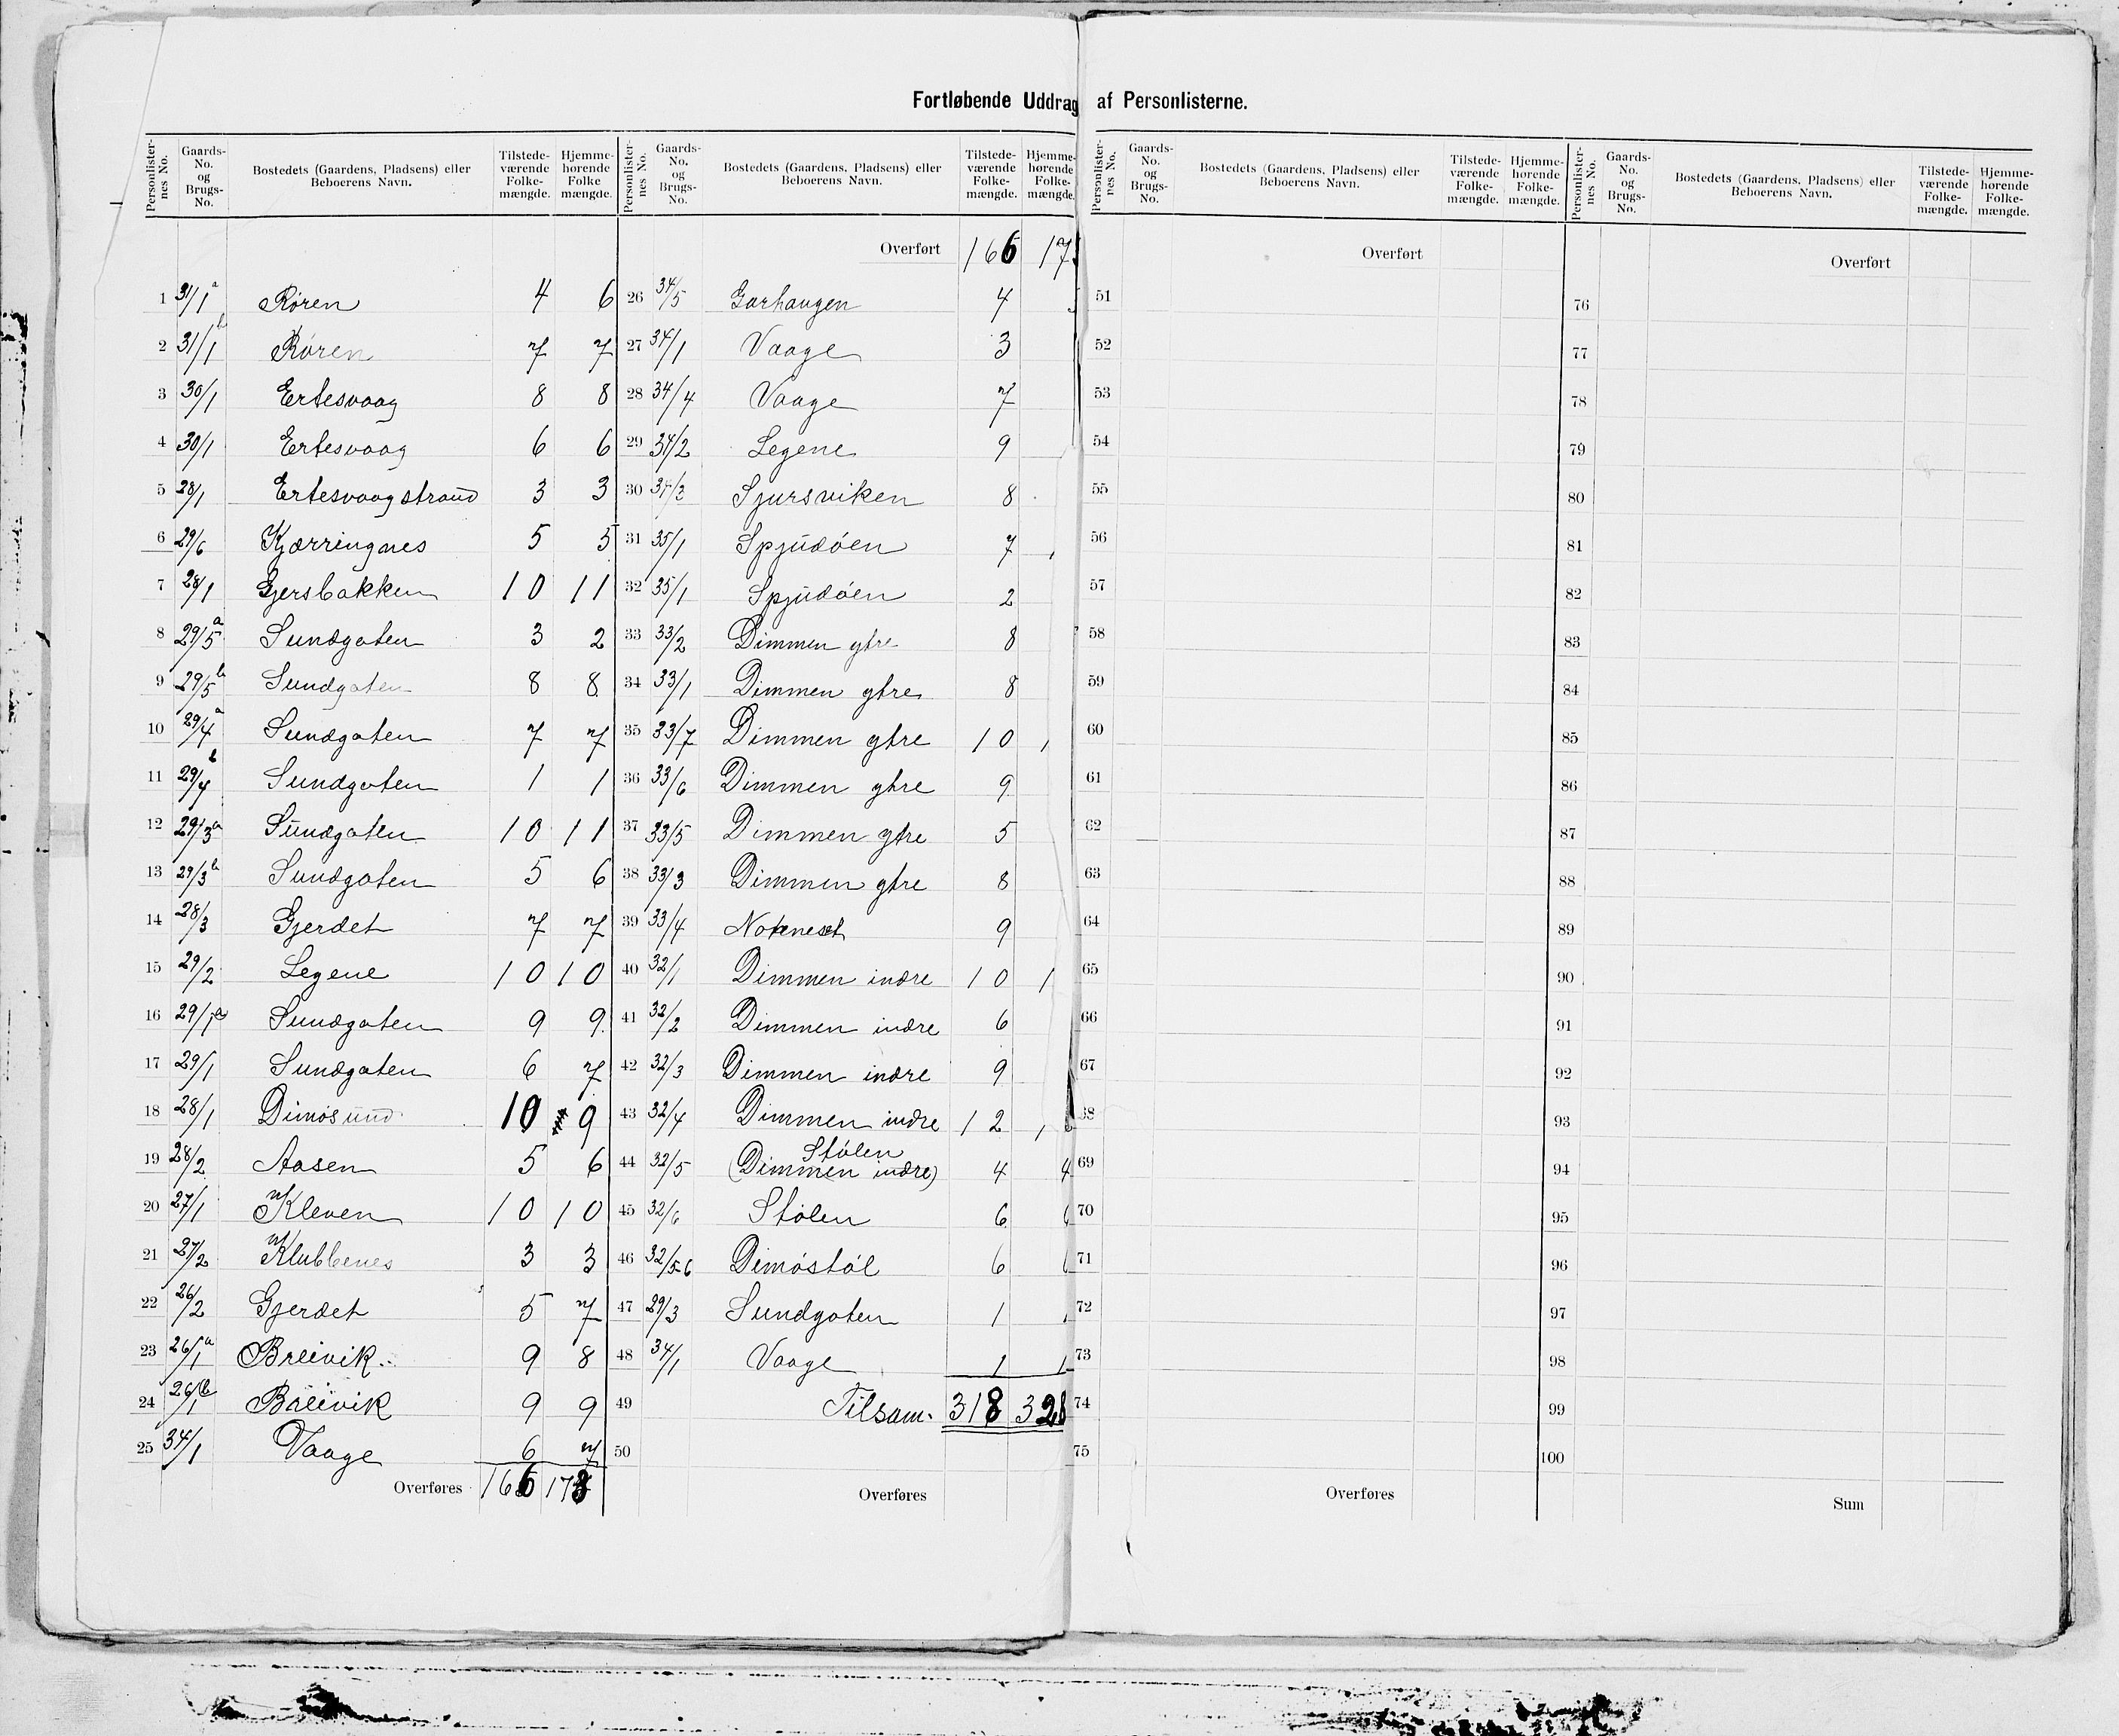 Fortløbende Uddrag af Personlisterne.
Personlister-nes No. Gaards-No. og Brugs-No. Bostedets (Gaardens, Pladsens) eller Beboerens Navn. Tilstede-værende Folke-mængde. Hjemme-hørende Folke mængde.
Personlister-nes No. Gaards-No. og Brugs-No. Bostedets (Gaardens, Pladsens) eller Beboerens Navn. Tilstede-værende Folke-mængde. Hjemme-hørende Folke-mængde.
1 31/1 a Røren 4 6
2 31/1 b Røren 7 7
3 30/1 Ertesvaag 8 8
4 30/1 Ertesvaag 6 6
5 28/1 Ertesvaagstrand 3 3
6 29/6 Kjærringnes 5 5
7 28/1 Gjersbakken 10 11
8 29/5 a Sundgoten 3 2
9 29/5 b Sundgoten 8 8
10 29/4 a Sundgoten 7 7
11 29/4 b Sundgoten 1 1
12 29/3 a Sundgoten 10 11
13 29/3 b Sundgoten 5 6
14 28/3 Gjerdet 7 7
15 29/2 Legene 10 10
16 29/1 a Sundgoten 9 9
17 29/1 Sundgoten 6 7
18 28/1 Dimøsund 10 9
19 28/2 Aasen 5 6
20 27/1 Kleven 10 10
21 27/2 Klubbenes 3 3
22 26/2 Gjerdet 5 7
23 26/1 a Breivik 9 8
24 26/1 b Breivik 9 9
25 34/1 Vaage 6 7
Overføres 166 173
Overført 166 17
26 34/5 Garhaugen 4
27 34/1 Vaage 3
28 34/4 Vaage 7
29 34/2 Legene 9
30 34/3 Sjursviken 8
31 35/1 Spjudøen 7
32 35/1 Spjudøen 2
33 33/2 Dimmen ytre 8
34 33/1 Dimmen ytre 8
35 33/7 Dimmen ytre 10
36 33/6 Dimmen ytre 9
37 33/5 Dimmen ytre 5
38 33/3 Dimmen ytre 8
39 33/4 Noteneset 9
40 32/1 Dimmen indre 10 1
41 32/2 Dimmen indre 6
42 32/3 Dimmen indre 9
43 32/4 Dimmen indre 12
44 32/5 Stølen (Dimmen indre) 4 4
45 32/6 Stølen 6
46 32/5-6 Dimøstøl 6
47 29/3 Sundgoten 1
48 34/1 Vaage 1 1
49 Tilsam. 318 328
50
Overføres
Personlister-nes No. Gaards-No. og Brugs-No. Bostedets (Gaardens, Pladsens) eller Beboerens Navn. Tilstede-værende Folke-mængde. Hjemme-hørende Folke-mængde.
Overført
51
52
53
54
55
56
57
58
59
60
61
62
63
64
65
66
67
68
69
70
71
72
73
74
75
Overføres
Personlister-nes No. Gaards-No. og Brugs-No. Bostedets (Gaardens, Pladsens) eller Beboerens Navn. Tilstede-værende Folke-mængde. Hjemme-hørende Folke-mængde.
Overført
76
77
78
79
80
81
82
83
84
85
86
87
88
89
90
91
92
93
94
95
96
97
98
99
100
Sum